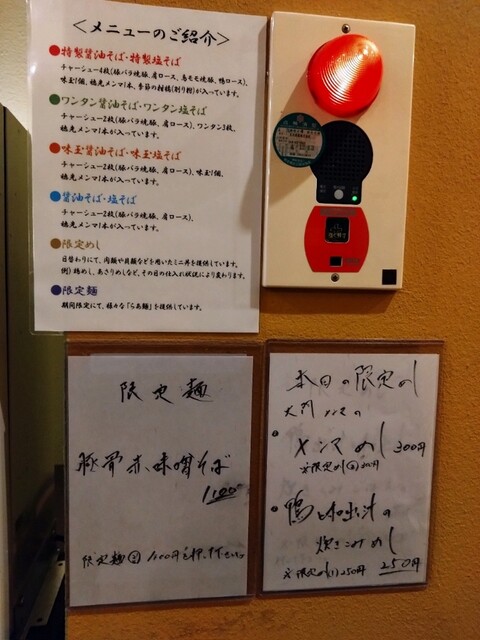 ＜メニューのご紹介＞
●特製醤油そば・特製塩そば
チャーシュー4枚(豚バラ焼豚、肩ロース、鳥モモ焼豚、鴨ロース)、
味玉1個、穂先メンマ1本、季節の柑橘(削り柑)が入っています。
●ワンタン醤油そば・ワンタン塩そば
チャーシュー2枚(豚バラ焼豚、肩ロース)、ワンタン3枚、
穂先メンマ1本が入っています。
●味玉醤油そば・味玉塩そば
チャーシュー2枚(豚バラ焼豚、肩ロース)、味玉1個、
穂先メンマ1本が入っています。
●醤油そば・塩そば
チャーシュー2枚(豚バラ焼豚、肩ロース)、
穂先メンマ1本が入っています。
●限定めし
日替わりにて、肉類や貝類などを用いたミニ丼を提供しています。
例)鶏めし、あさりめしなど、その日の仕入れ状況により変わります。
●限定麺
期間限定にて、様々な「らぁ麺」を提供しています。
限定麺
豚骨赤味噌そば
1,100
限定麺 1,100円を押して下さい
本日の限定めし
メンマめし 300円
鴨と和出汁の
炊きこみめし
250円
※限定めし(1) 250円